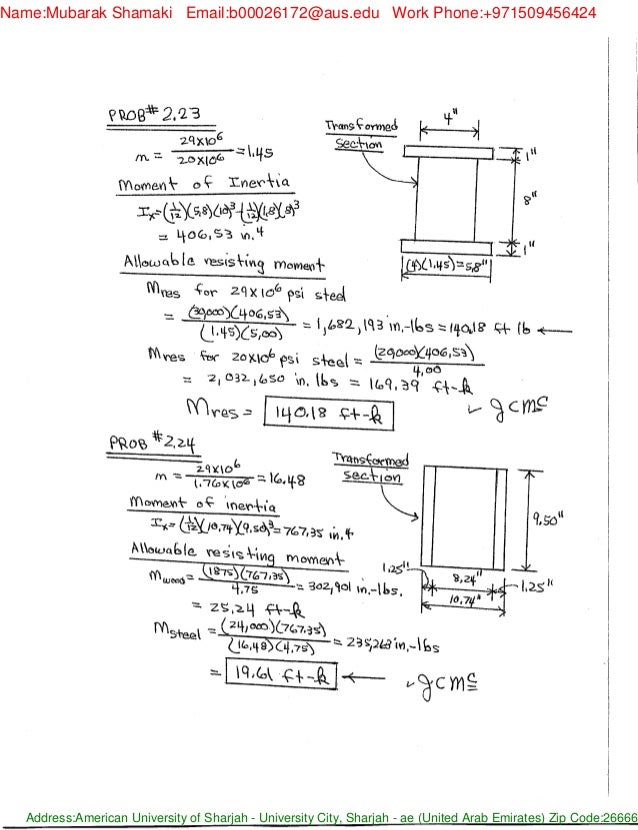 Name:Mubarak Shamaki Email:b00026172@aus.edu Work Phone:+971509456424
PROB# 2.23
n = 29x10⁶ / 20x10⁶ = 1.45
Transformed section
4"
1"
8"
1"
(4)(1.45)=5.8"
Moment of Inertia
Ix=(1/12)(5.8)(10)³-(1/12)(1.8)(8)³
= 406,53 in.⁴
Allowable resisting moment
Mres for 29x10⁶ psi steel
= (30,000)(406,53) / (1.45)(5,00) = 1,682,193 in.-lbs = 140.18 ft lb ←
Mres for 20x10⁶ psi steel = (20,000)(406,53) / 4,00
= 2,032,650 in. lbs = 169,39 ft-k
Mres = 140.18 ft-k
gcmc
PROB #2.24
n = 29x10⁶ / 1.76x10⁶ = 16.48
Transformed section
9.50"
1.25"
8,24"
1.25"
10.74"
Moment of inertia
Ix=(1/12)(10,74)(9.50)³=767,35 in.⁴
Allowable resisting moment
Mwood = (1875)(767,35) / 4.75 = 302,901 in.-lbs.
= 25,24 ft-k
Msteel = (24,000)(767,35) / (16,48)(4,75) = 235,263 in.-lbs
= 19.61 ft-k ←
gcmc
Address:American University of Sharjah - University City, Sharjah - ae (United Arab Emirates) Zip Code:26666